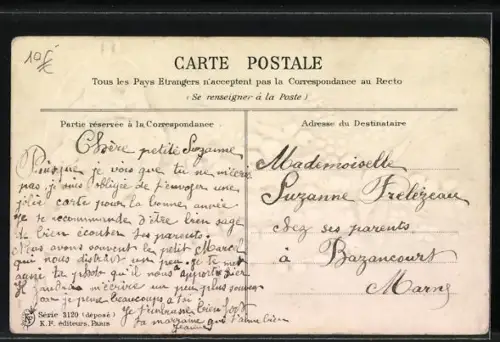 10 €
CARTE POSTALE
Tous les Pays Etrangers n'acceptent pas la Correspondance au Recto
(Se renseigner à la Poste)
Partie réservée à la Correspondance
Adresse du Destinataire
Chère petite Suzanne
Puisque je vois que tu ne m'écris
pas je suis obligée de t'envoyer une
jolie carte pour la bonne année
je te recommande d'être bien sage
de bien écouter tes parents.
Nous avons souvent le petit Marcel
qui nous distrait un peu je te
ta photo qu'il nous a apporté hier
m'écrire un peu plus souvent
car je pense beaucoup a toi
je t'embrasse bien fort
ta marraine qui t'aime bien
Jeanne
Mademoiselle
Suzanne Frelezeau
chez ses parents
à Bazancourt
Marne
Série 3120 (déposé)
K. F. éditeurs, Paris